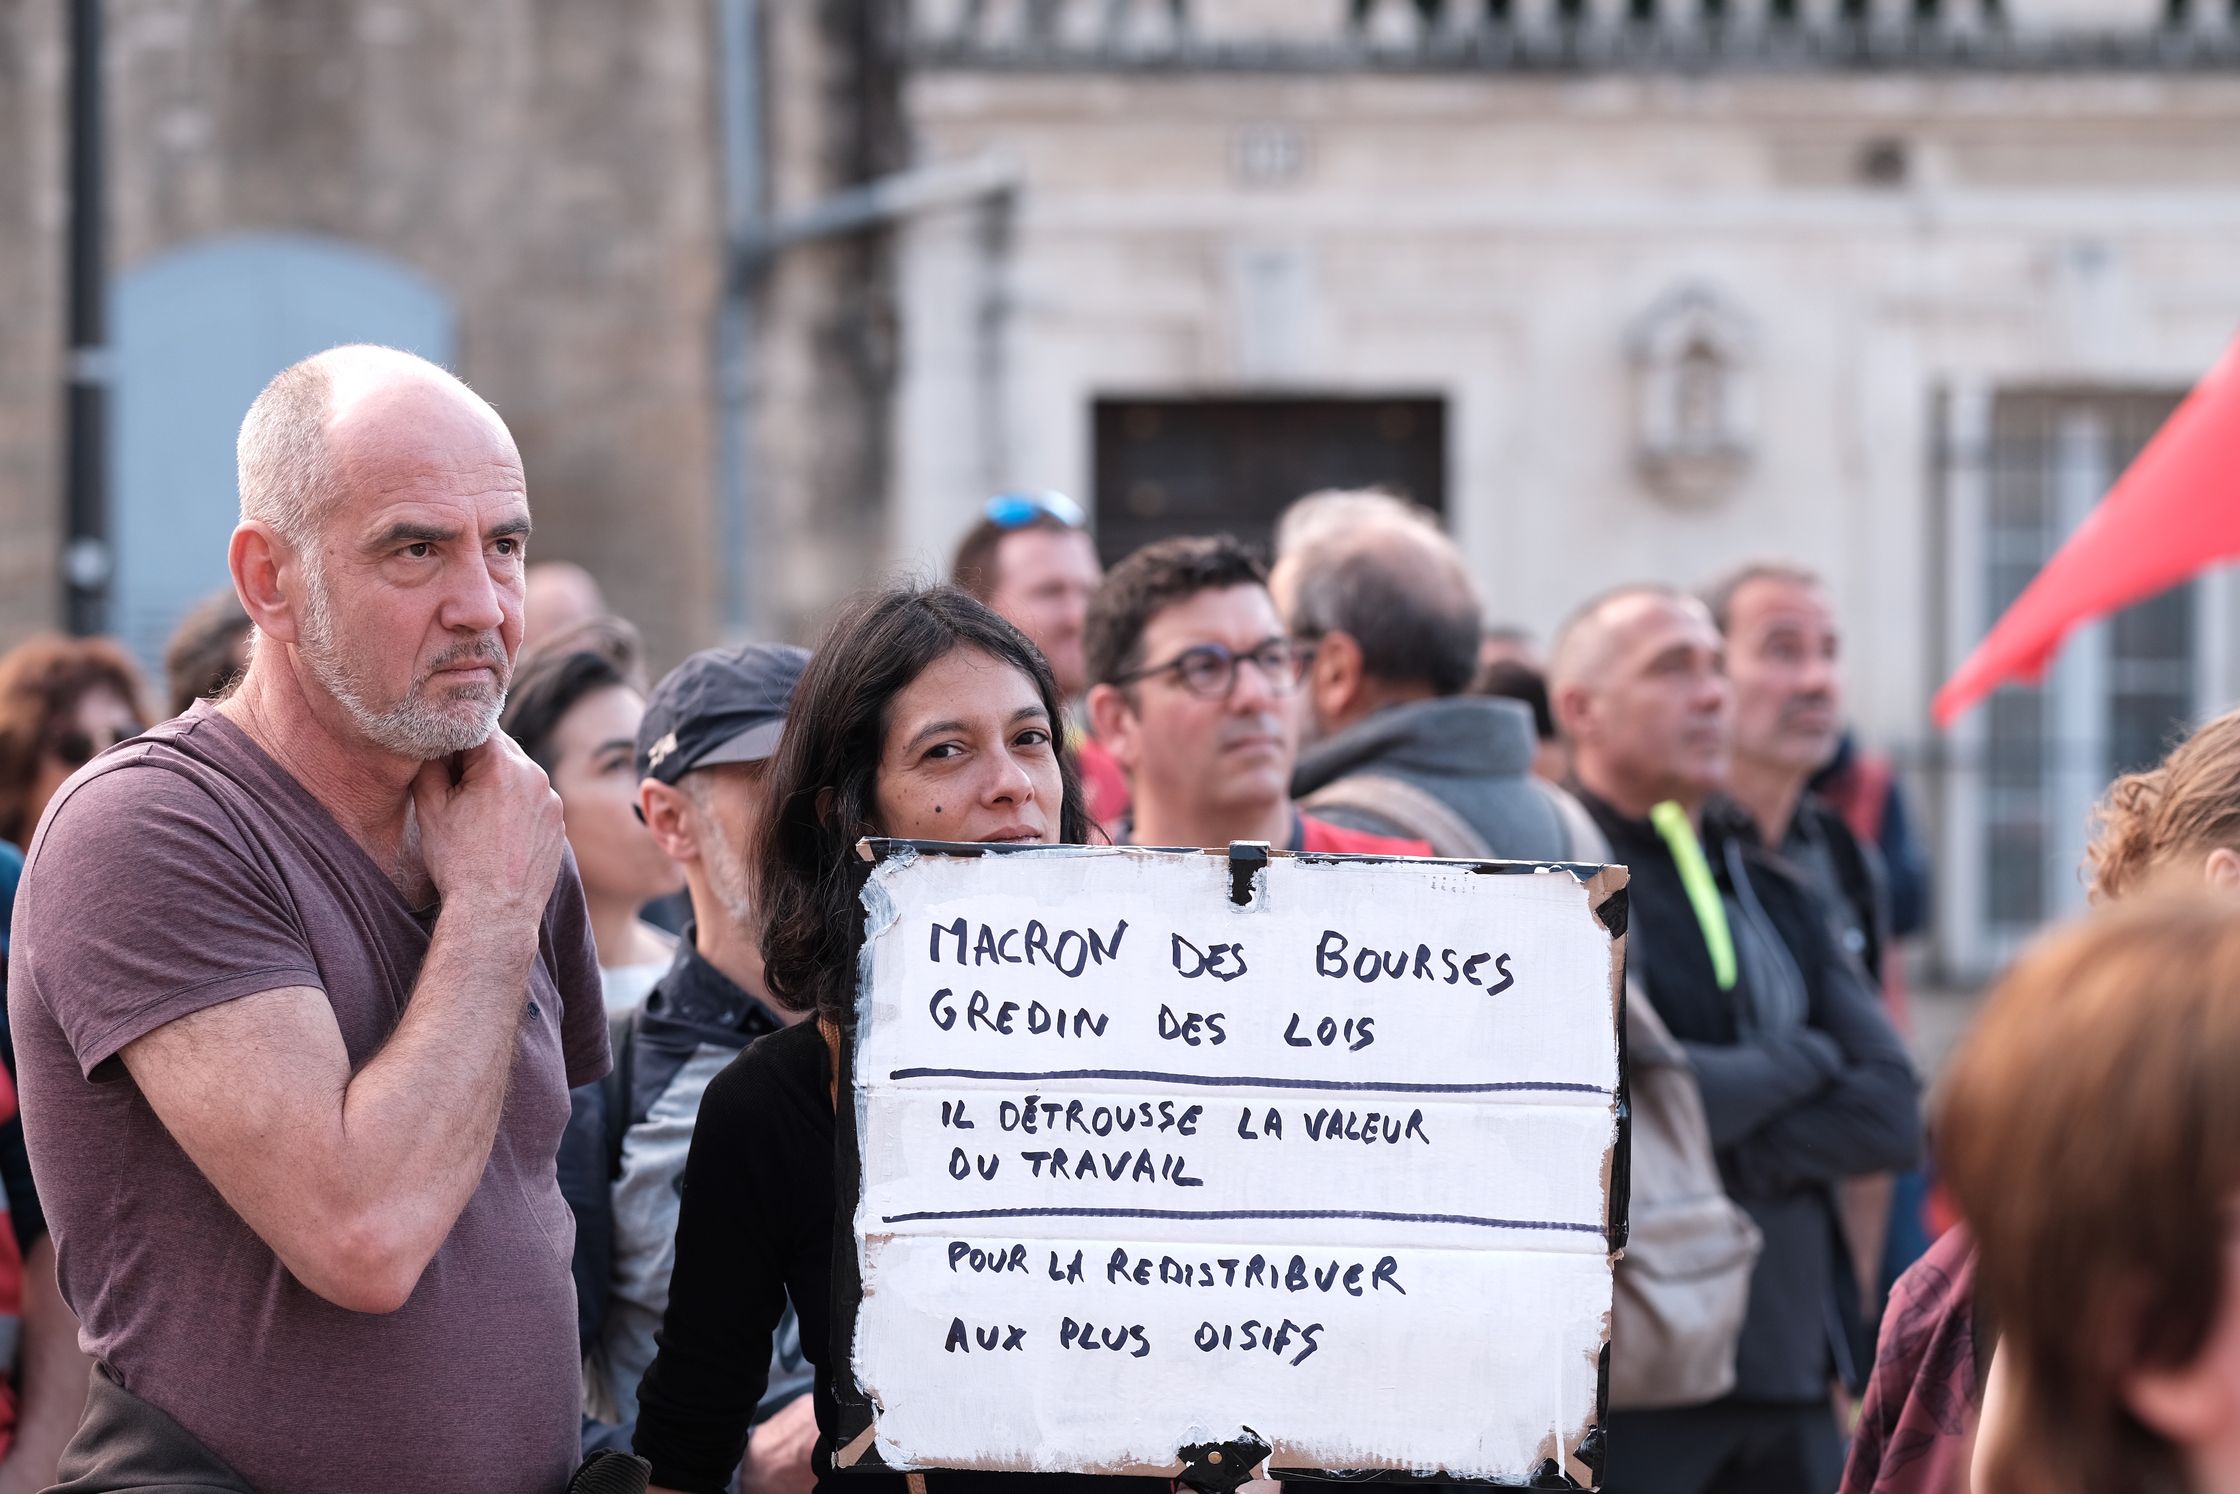 MACRON DES BOURSES
GREDIN DES LOIS
IL DÉTROUSSE LA VALEUR
DU TRAVAIL
POUR LA REDISTRIBUER
AUX PLUS OISIFS